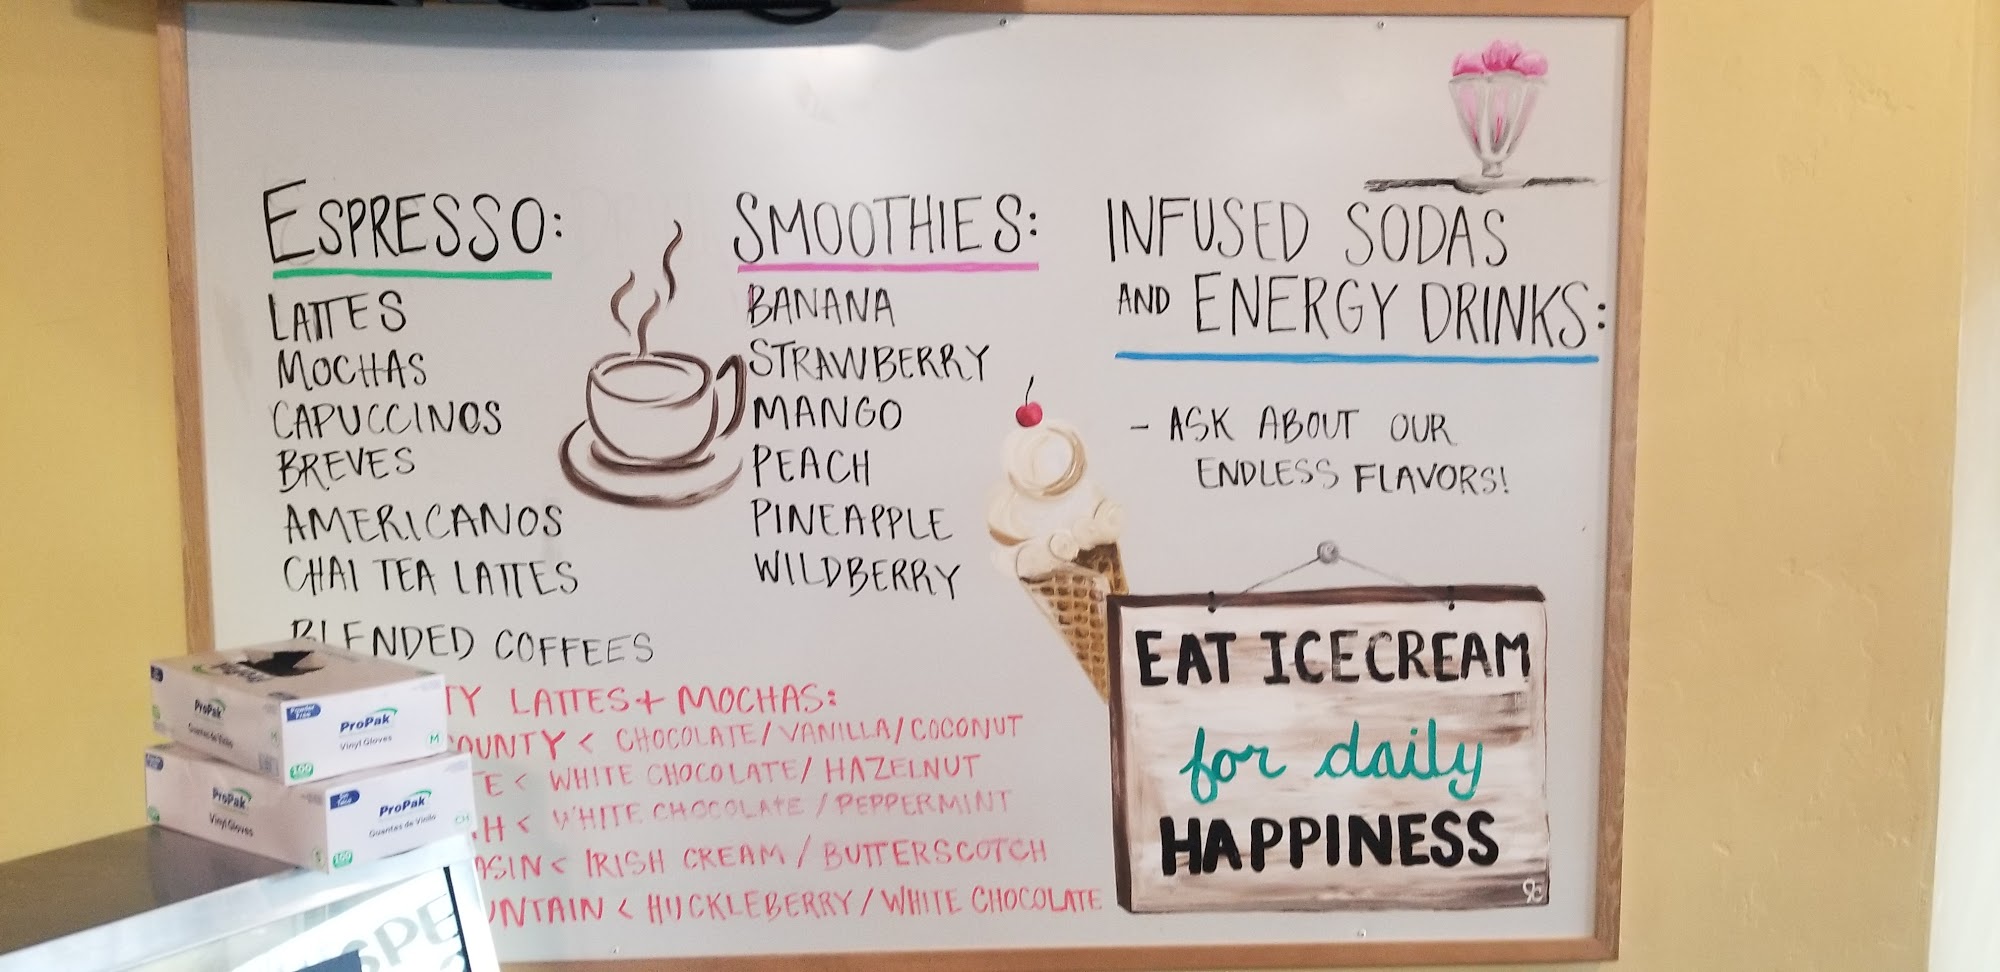 ESPRESSO:
LATTES
MOCHAS
CAPUCCINOS
BREVES
AMERICANOS
CHAI TEA LATTES
BLENDED COFFEES
LATTES + MOCHAS:
< CHOCOLATE/VANILLA/COCONUT
< WHITE CHOCOLATE/HAZELNUT
< WHITE CHOCOLATE/PEPPERMINT
< IRISH CREAM/BUTTERSCOTCH
< HUCKLEBERRY/WHITE CHOCOLATE
SMOOTHIES:
BANANA
STRAWBERRY
MANGO
PEACH
PINEAPPLE
WILDBERRY
INFUSED SODAS
AND ENERGY DRINKS:
- ASK ABOUT OUR
ENDLESS FLAVORS!
EAT ICECREAM
for daily
HAPPINESS
ProPak
Guantes de Vinilo
M
Powder Free
ProPak
Vinyl Gloves
M
100
ProPak
Vinyl Gloves
100
ProPak
Guantes de Vinilo
CH